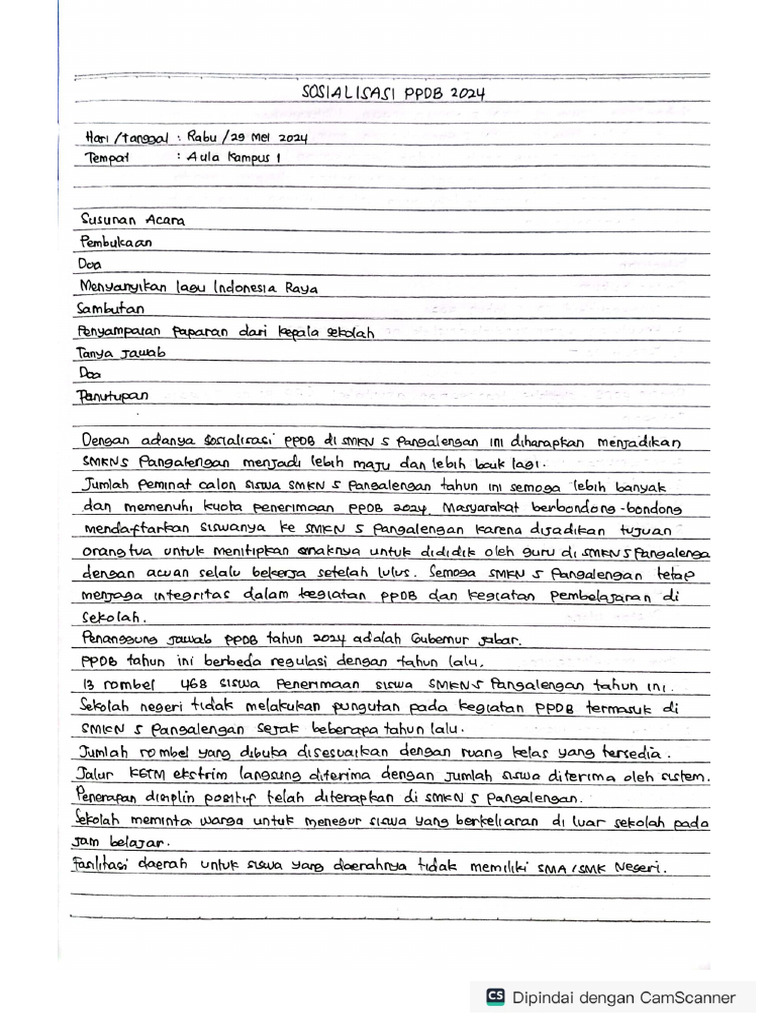 SOSIALISASI PPDB 2024
Hari/tanggal : Rabu/29 Mei 2024
Tempat : Aula Kampus 1
Susunan Acara
Pembukaan
Doa
Menyanyikan lagu Indonesia Raya
Sambutan
Penyampaian Paparan dari kepala sekolah
Tanya Jawab
Doa
Panutupan
Dengan adanya sosialisasi PPDB di SMKN 5 Pangalengan ini diharapkan menjadikan
SMKN5 Pangalengan menjadi lebih maju dan lebih baik lagi.
Jumlah Peminat calon siswa SMKN 5 Pangalengan tahun ini semoga lebih banyak
dan memenuhi kuota penerimaan PPDB 2024. Masyarakat berbondong-bondong
mendaftarkan siswanya ke SMKN 5 Pangalengan karena dijadikan tujuan
orangtua untuk menitipkan anaknya untuk dididik oleh guru di SMKN5 Pangalenga
dengan acuan selalu bekerja setelah lulus. Semoga SMKN 5 Pangalengan tetap
menjaga integritas dalam kegiatan PPDB dan kegiatan Pembelajaran di
sekolah.
Penanggung Jawab PPDB tahun 2024 adalah Gubernur Jabar.
PPDB tahun ini berbeda regulasi dengan tahun lalu.
13 rombel 468 siswa Penerimaan siswa SMKN5 Pangalengan tahun ini.
Sekolah negeri tidak melakukan pungutan pada kegiatan PPDB termasuk di
SMKN 5 Pangalengan sejak beberapa tahun lalu.
Jumlah rombel yang dibuka disesuaikan dengan ruang kelas yang tersedia.
Jalur KETM ekstrim langsung diterima dengan jumlah siswa diterima oleh sistem.
Penerapan disiplin positif telah diterapkan di SMKN 5 Pangalengan.
Sekolah meminta warga untuk menegur siswa yang berkeliaran di luar sekolah pada
jam belajar.
Fasilitasi daerah untuk siswa yang daerahnya tidak memiliki SMA/SMK Negeri.
CS Dipindai dengan CamScanner